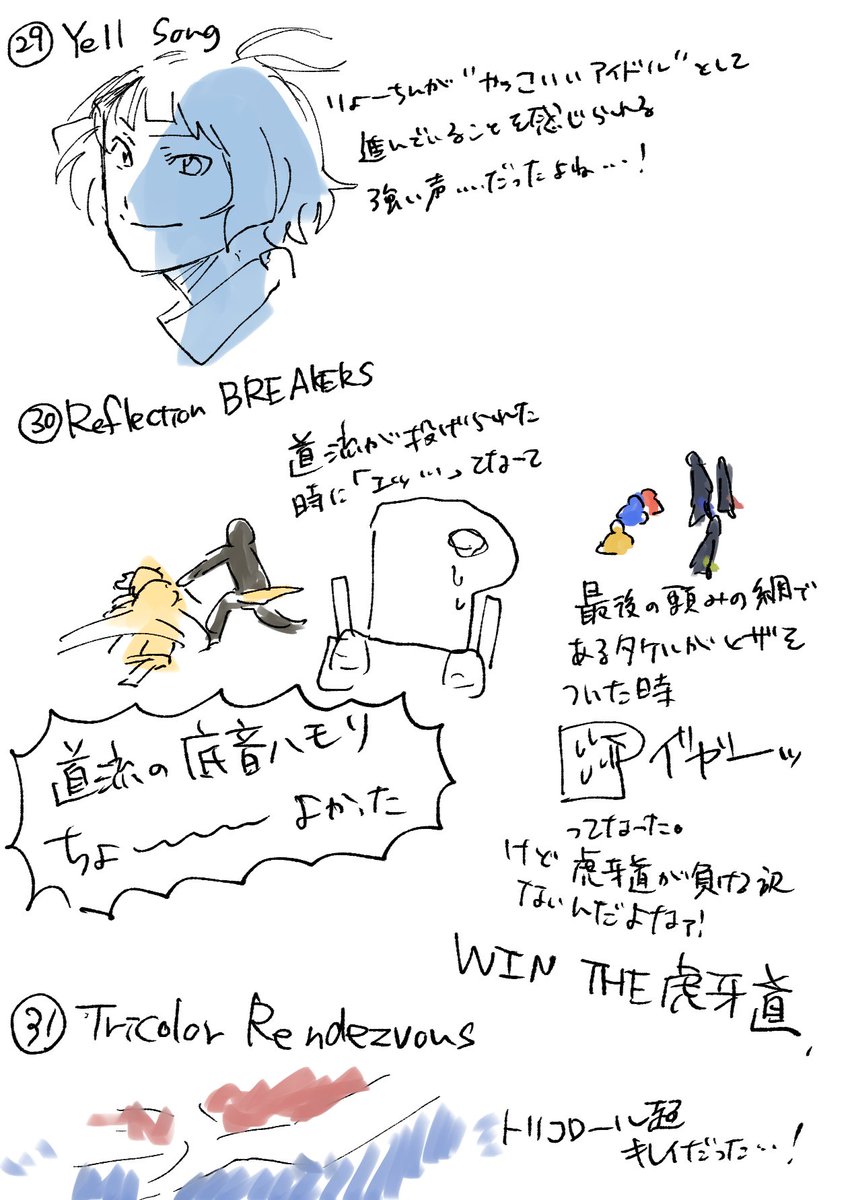 ㉙ Yell Song
りょーちんが"かっこいいアイドル"として
進んでいることを感じられる
強い声…だったよね…!
㉚ Reflection BREAKERS
道流が投げられた
時に「エッ…」てなって
道流の底音ハモリ
ちょ〜〜〜よかった
最後の頼みの綱で
あるタケルがヒザを
ついた時
イヤーッ
ってなった。
けど虎牙道が負ける訳
ないんだよなァ!
WIN THE 虎牙道
㉛ Tricolor Rendezvous
トリコロール超
キレイだった…!